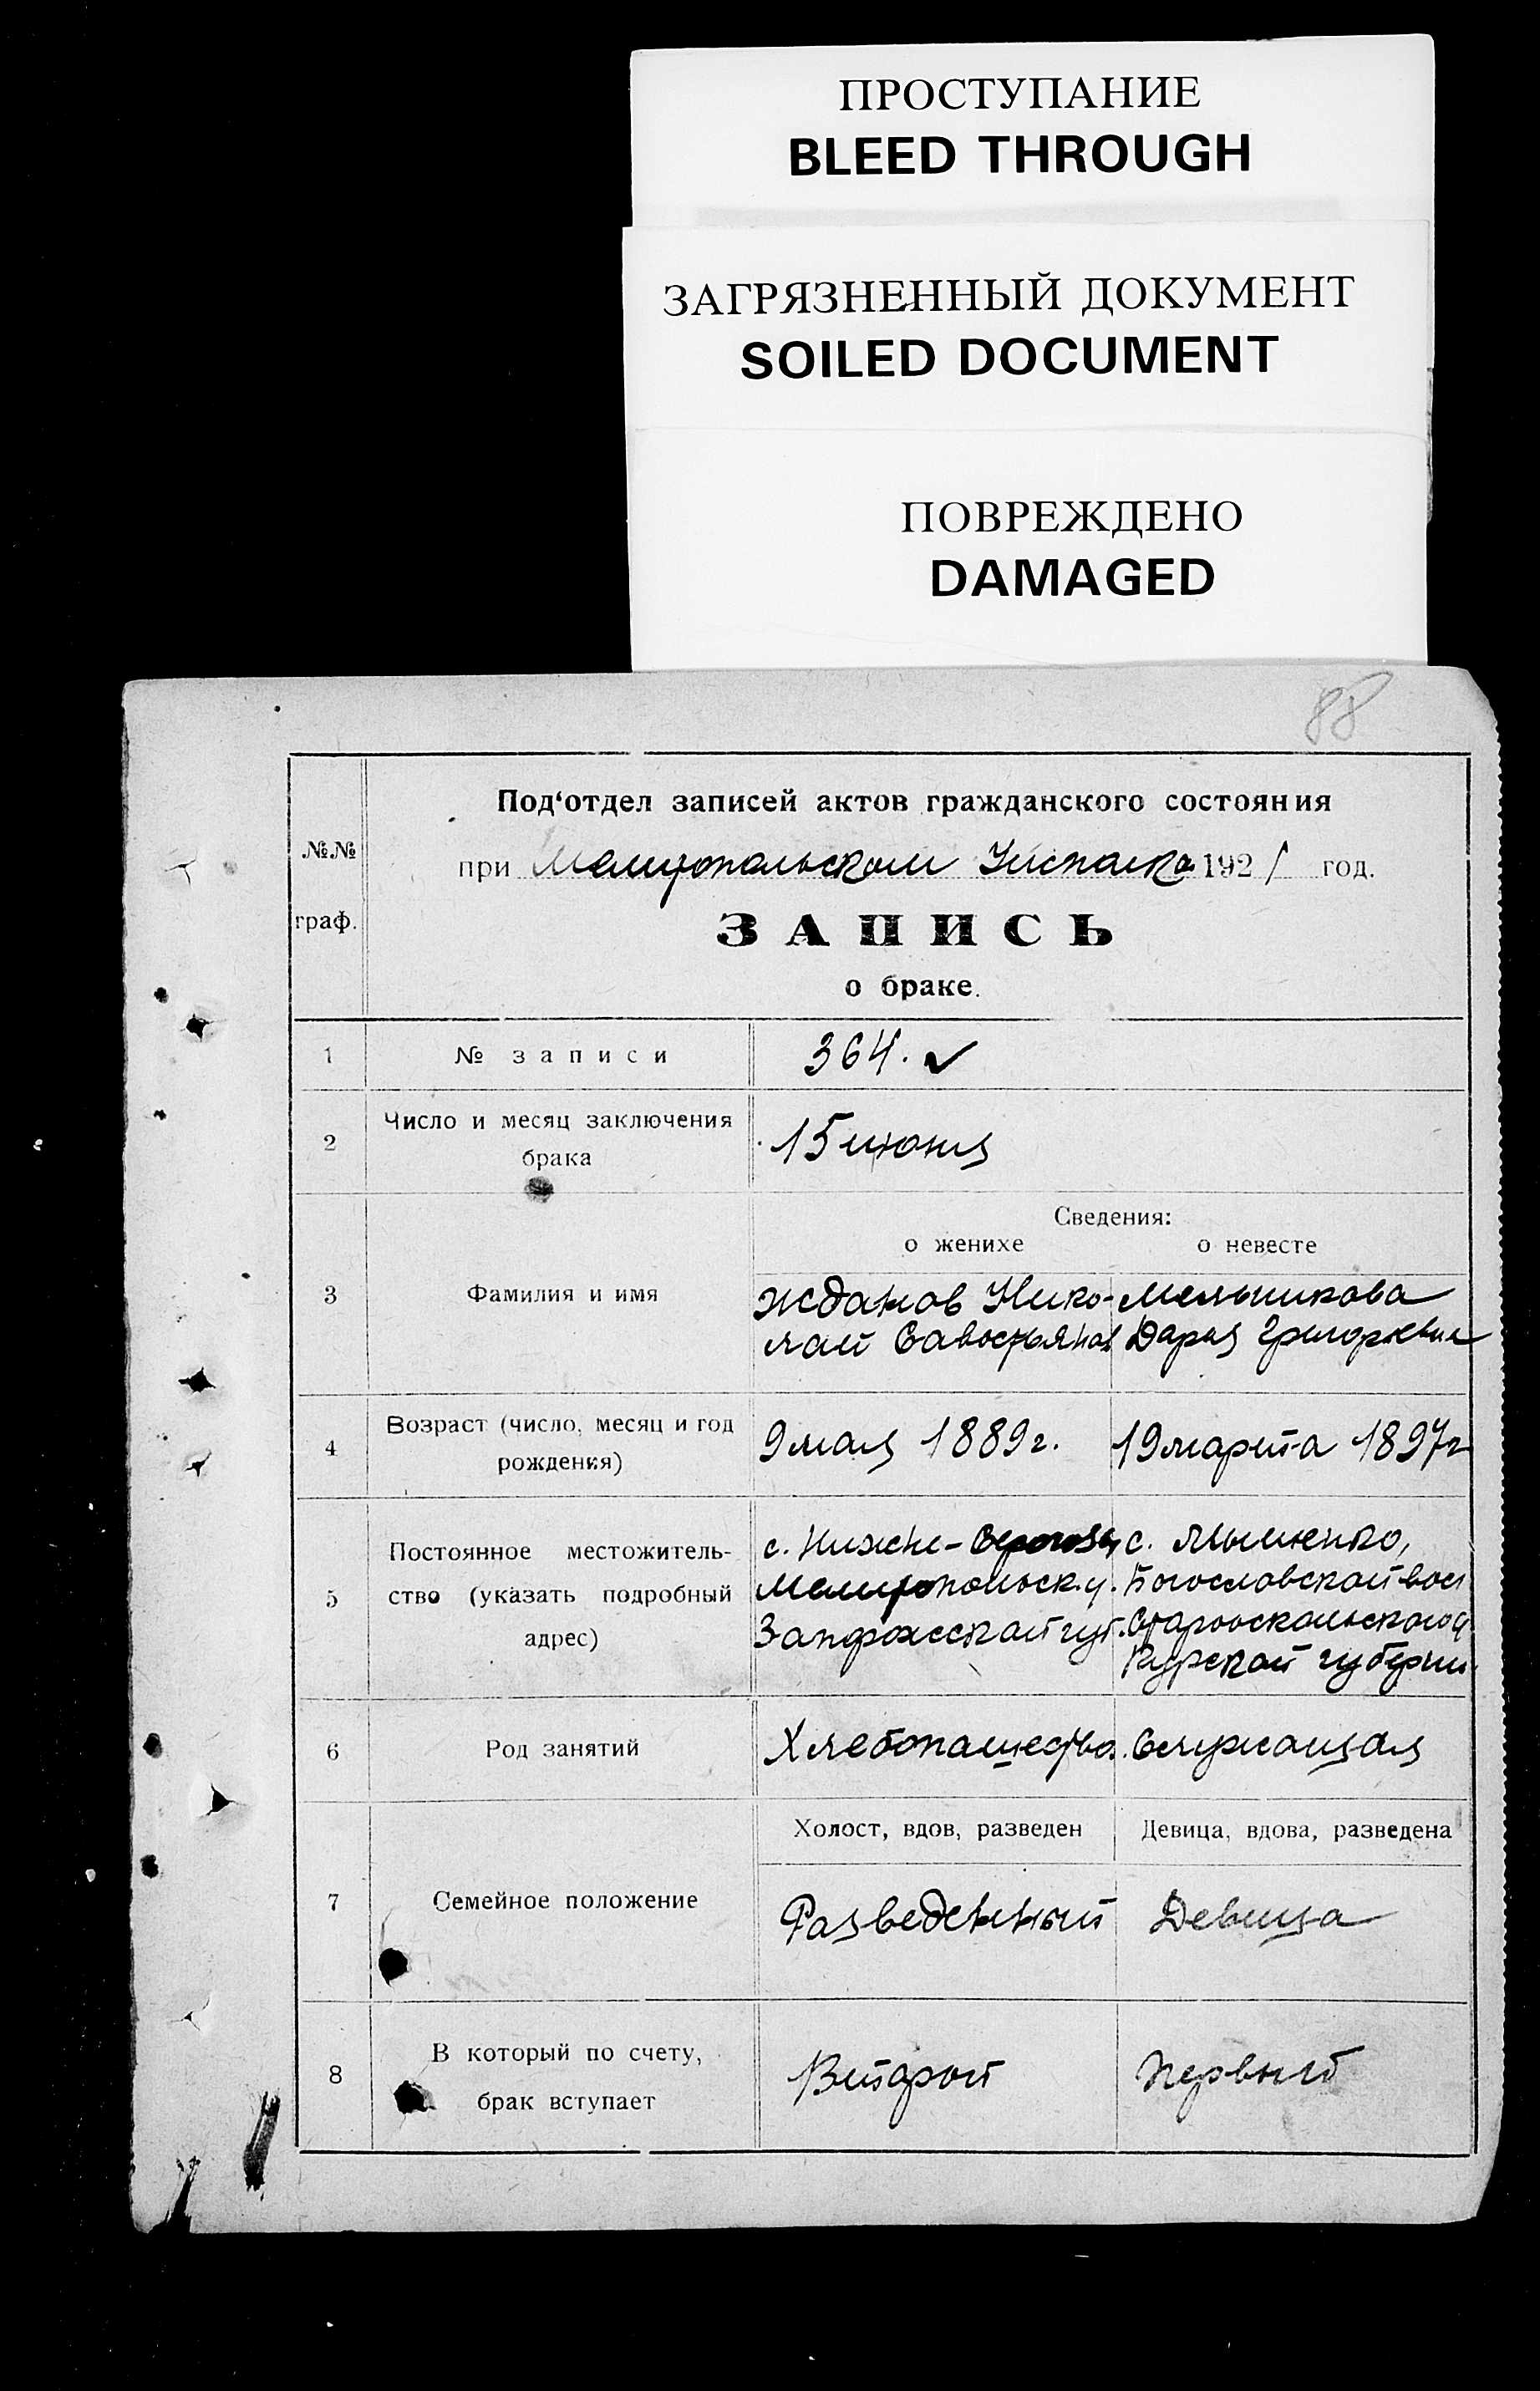 ПРОСТУПАНИЕ
BLEED THROUGH
ЗАГРЯЗНЕННЫЙ ДОКУМЕНТ
SOILED DOCUMENT
ПОВРЕЖДЕНО
DAMAGED
88
№№ граф.
Под‘отдел записей актов гражданского состояния
при Мелитопольском 192 1 год.
ЗАПИСЬ
о браке.
1 № записи 364.
2 Число и месяц заключения
брака
15 июня
Сведения:
о женихе о невесте
3 Фамилия и имя
Жданов Нико- Мельникова
лай Савостьянов Дария Григорьевна
4 Возраст (число, месяц и год
рождения)
9 мая 1889 г. 19 марта 1897 г
5 Постоянное местожитель-
ство (указать подробный
адрес)
с. Нижне- с.
Мелитопольск. у. Богословской вол
Запорожской губ. Старооскольского у
Курской губернии
6 Род занятий
Хлебопашество. Служащая
Холост, вдов, разведен Девица, вдова, разведена
7 Семейное положение
Разведенный Девица
8 В который по счету,
брак вступает
Второй Первый